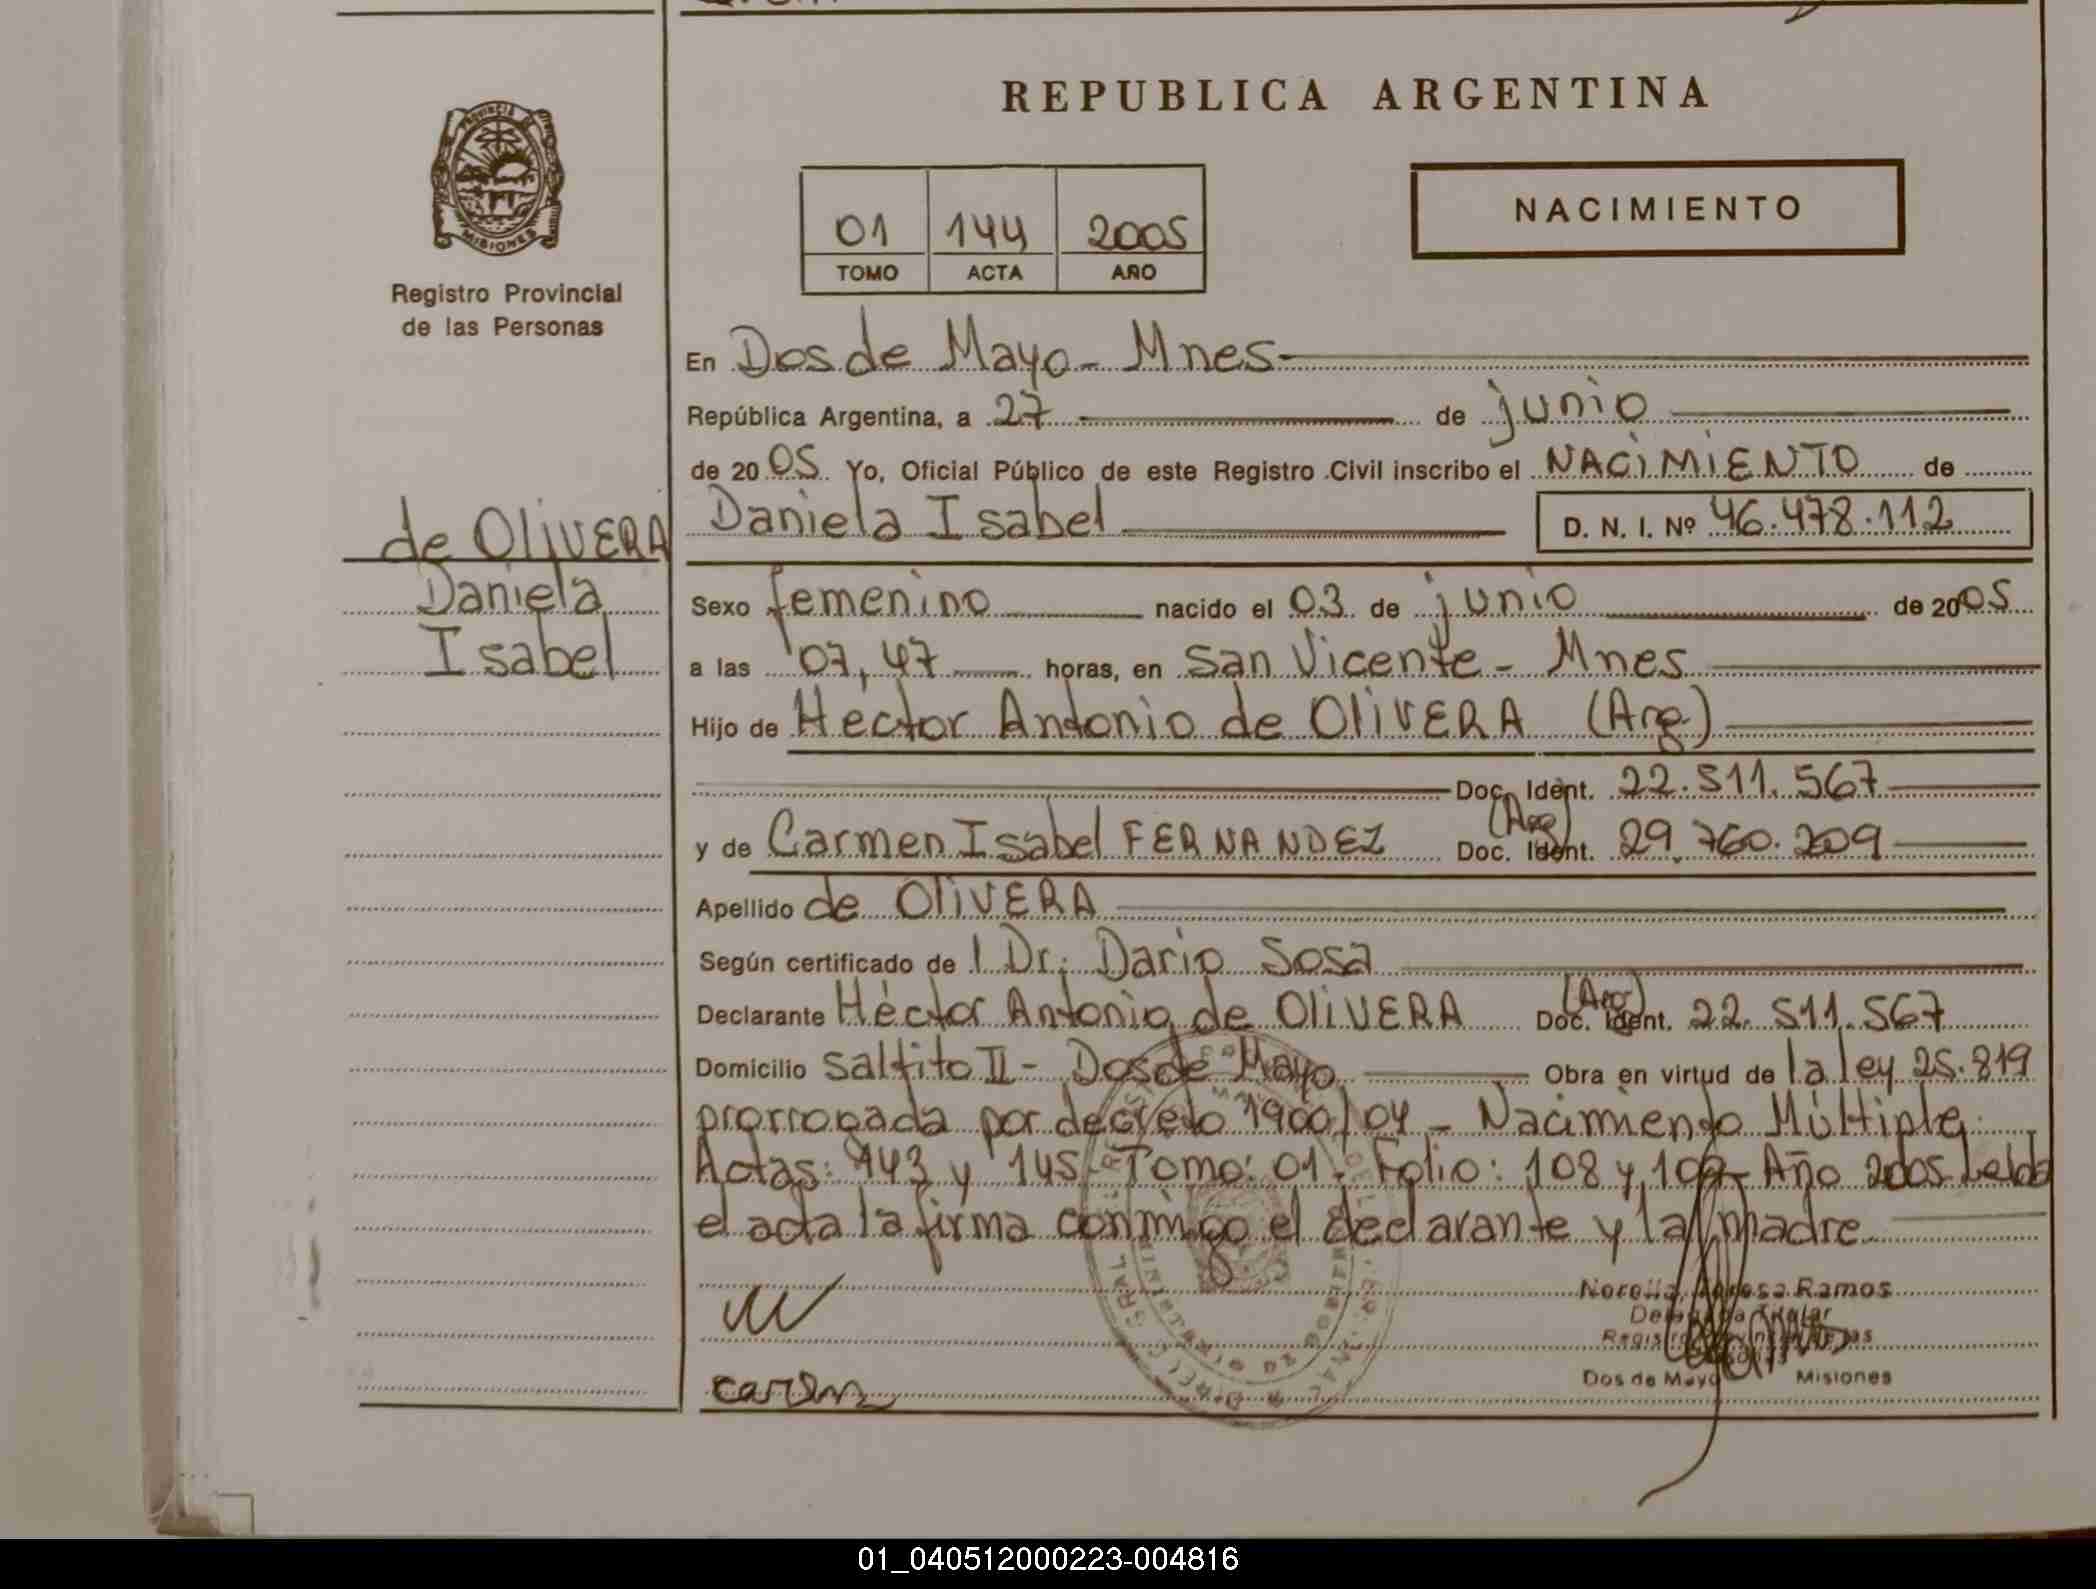 REPUBLICA ARGENTINA
PROVINCIA DE
MISIONES
Registro Provincial
de las Personas
01 144 2005
TOMO ACTA AÑO
NACIMIENTO
En Dos de Mayo - Mnes
República Argentina, a 27 de junio
de 2005 Yo, Oficial Público de este Registro Civil inscribo el NACIMIENTO de
de OLIVERA
Daniela
Isabel
Daniela Isabel D. N. I. Nº 46.478.112
Sexo femenino nacido el 03 de junio de 2005
a las 07,47 horas, en San Vicente - Mnes
Hijo de Hector Antonio de OLIVERA (Arg)
Doc. Ident. 22.511.567
y de Carmen Isabel FERNANDEZ (Arg) Doc. Ident. 29.760.209
Apellido de OLIVERA
Según certificado de l Dr. Dario Sosa
Declarante Héctor Antonio de OLIVERA (Arg) Doc. Ident. 22.511.567
Domicilio Saltito II - Dos de Mayo Obra en virtud de la ley 25.819
prorrogada por decreto 1900/04 - Nacimiento Múltiple.
Actas: 143 y 145 - Tomo: 01 - Folio: 108 y 109 - Año 2005 Leida
el acta la firma conmigo el declarante y la madre
Teresa Ramos
Delegada Titular
Dos de Mayo Misiones
01_040512000223-004816